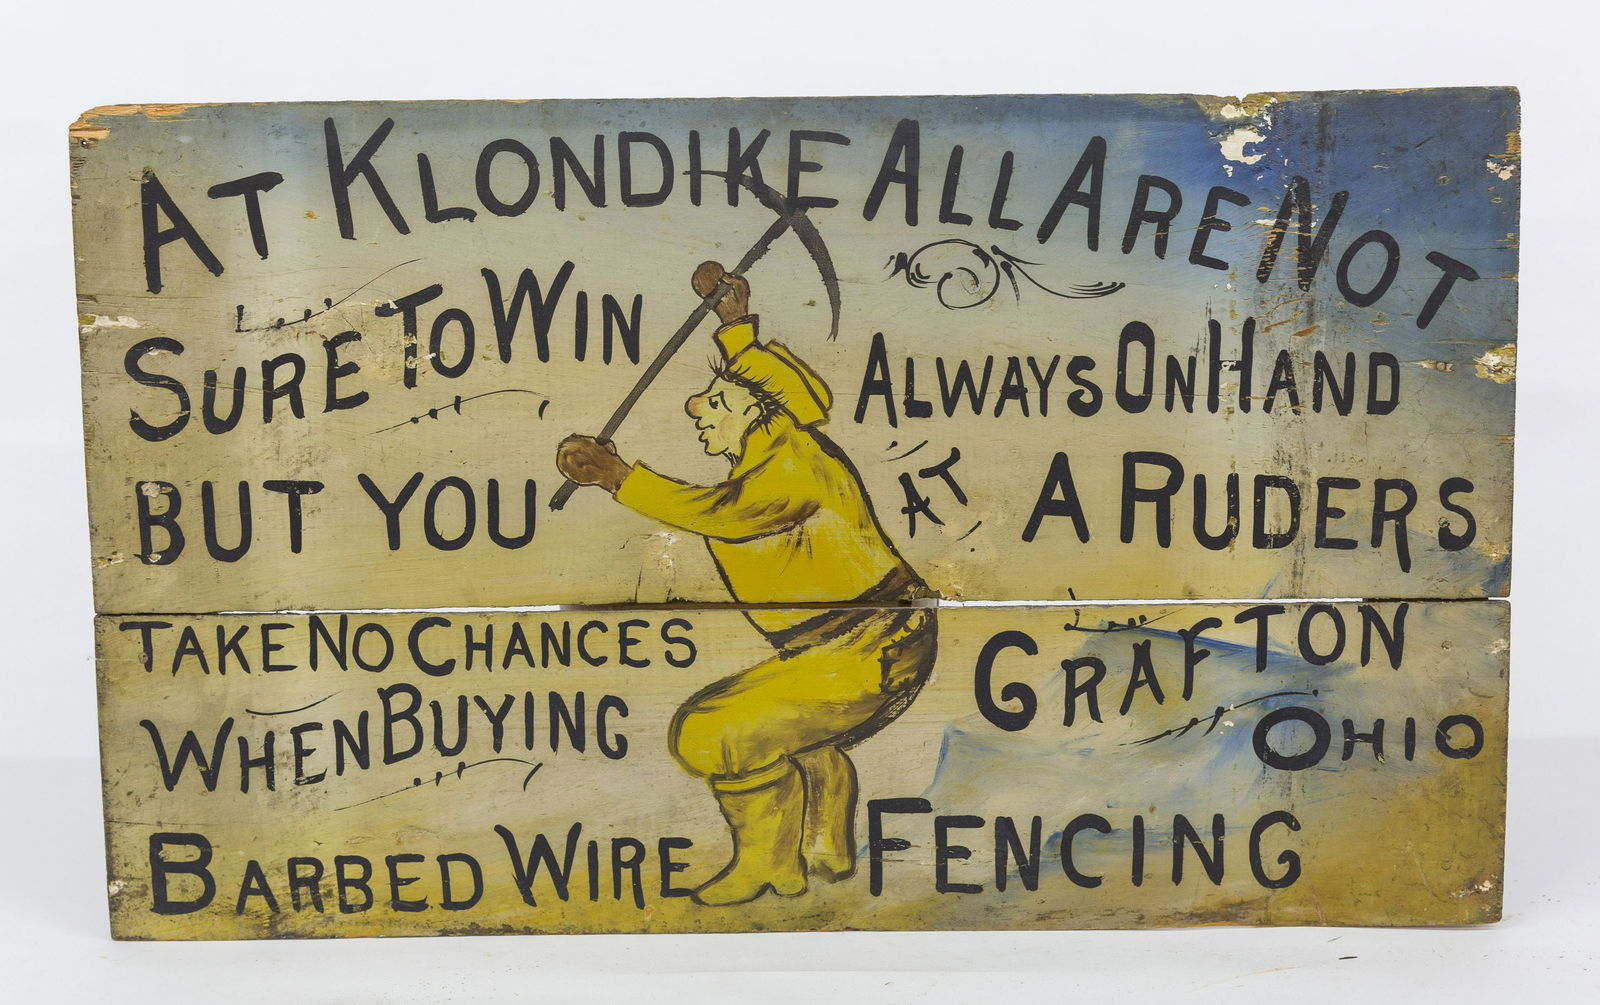 AT KLONDIKE ALL ARE NOT
SURE TO WIN
BUT YOU
TAKE NO CHANCES
WHEN BUYING
BARBED WIRE FENCING
ALWAYS ON HAND
AT A RUDERS
GRAFTON
OHIO